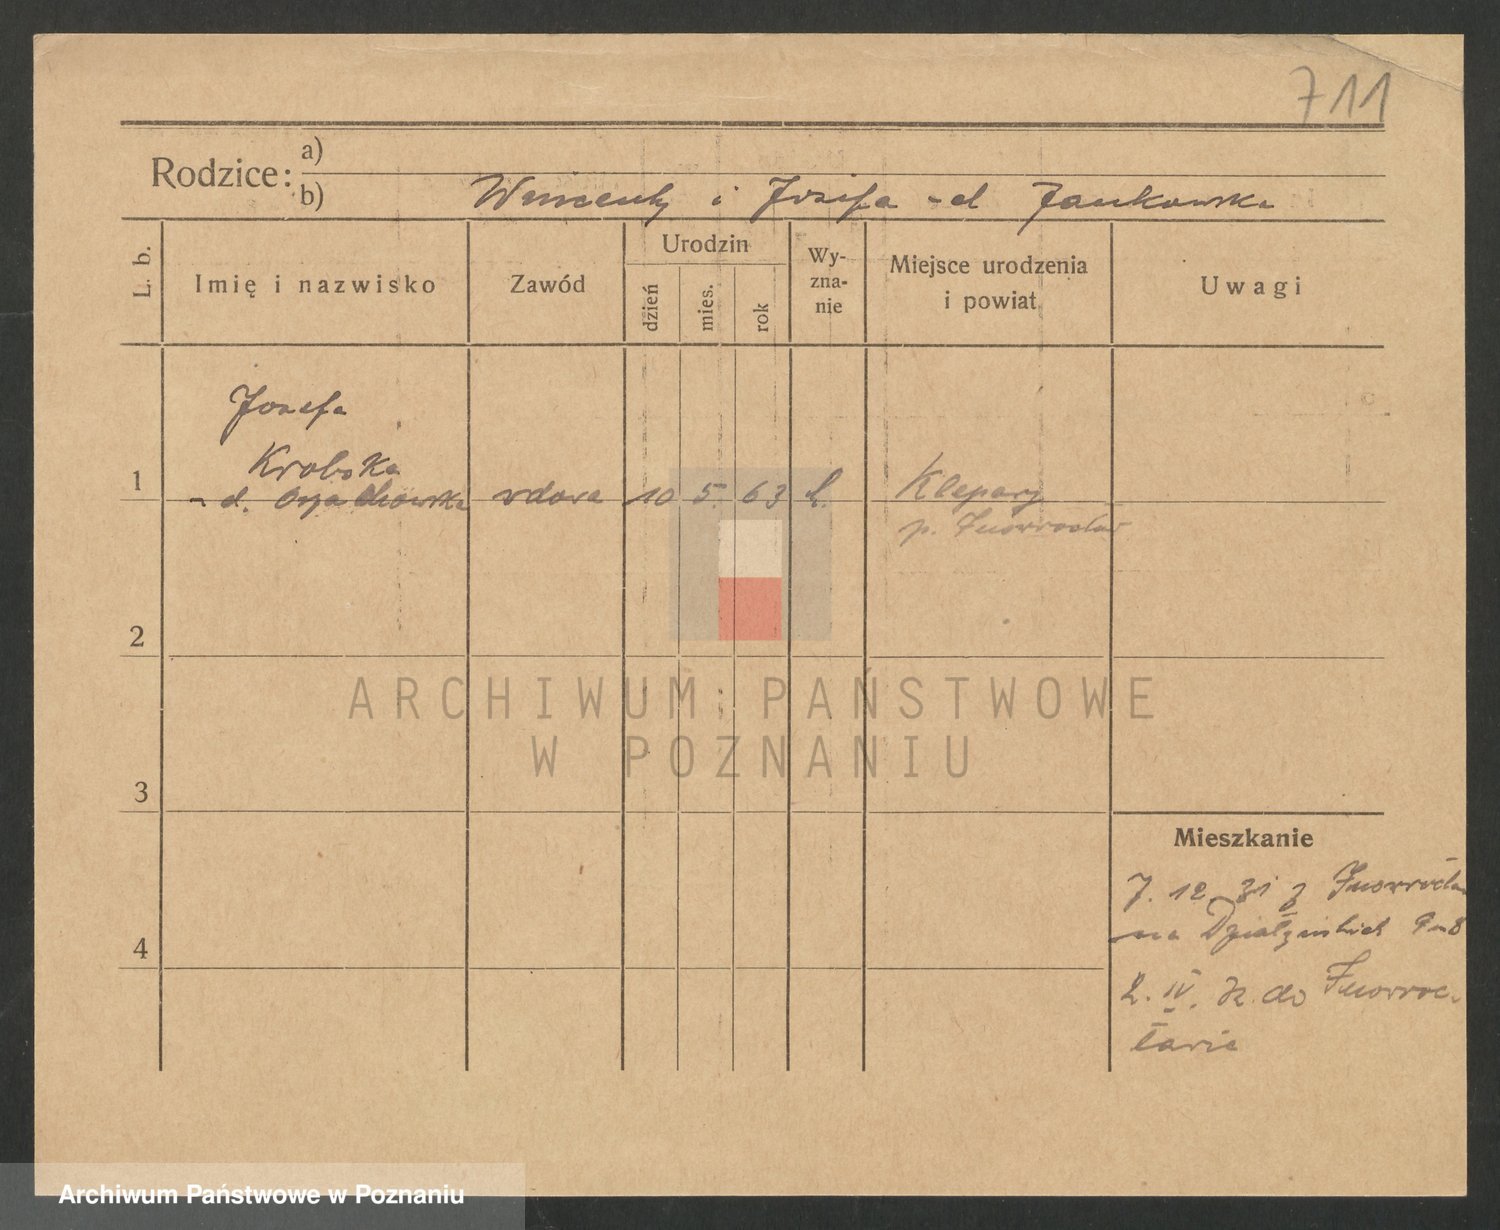 711
Rodzice:
a)
b) Wincenty i Józefa -d Jankowska
L. b.
Imię i nazwisko
Zawód
Urodzin
dzień
mies.
rok
Wy-
zna-
nie
Miejsce urodzenia
i powiat
Uwagi
Józefa
Krobska
1
-d.
wdowa 10 5. 63
Klepary
p. Inowrocław
2
3
4
Mieszkanie
7. 12. 31 z Inowrocław
na Działyńskich 9 m 8
2. IV. 32. do Inowroc-
ławia
ARCHIWUM PAŃSTWOWE
W POZNANIU
Archiwum Państwowe w Poznaniu